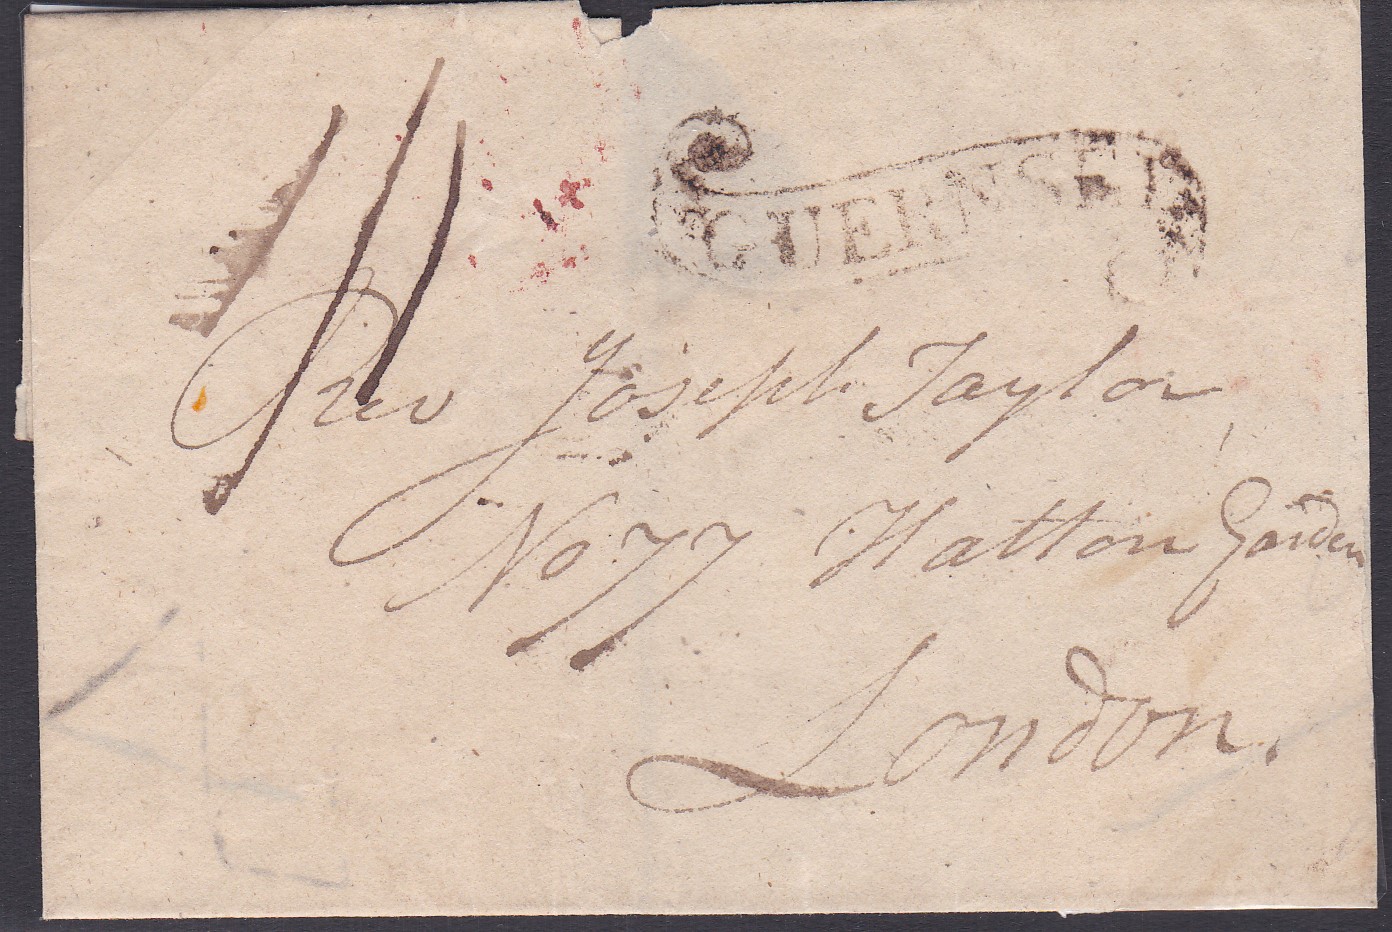 GUERNSEY
Rev Joseph Taylor
No 77 Hatton Garden
London.